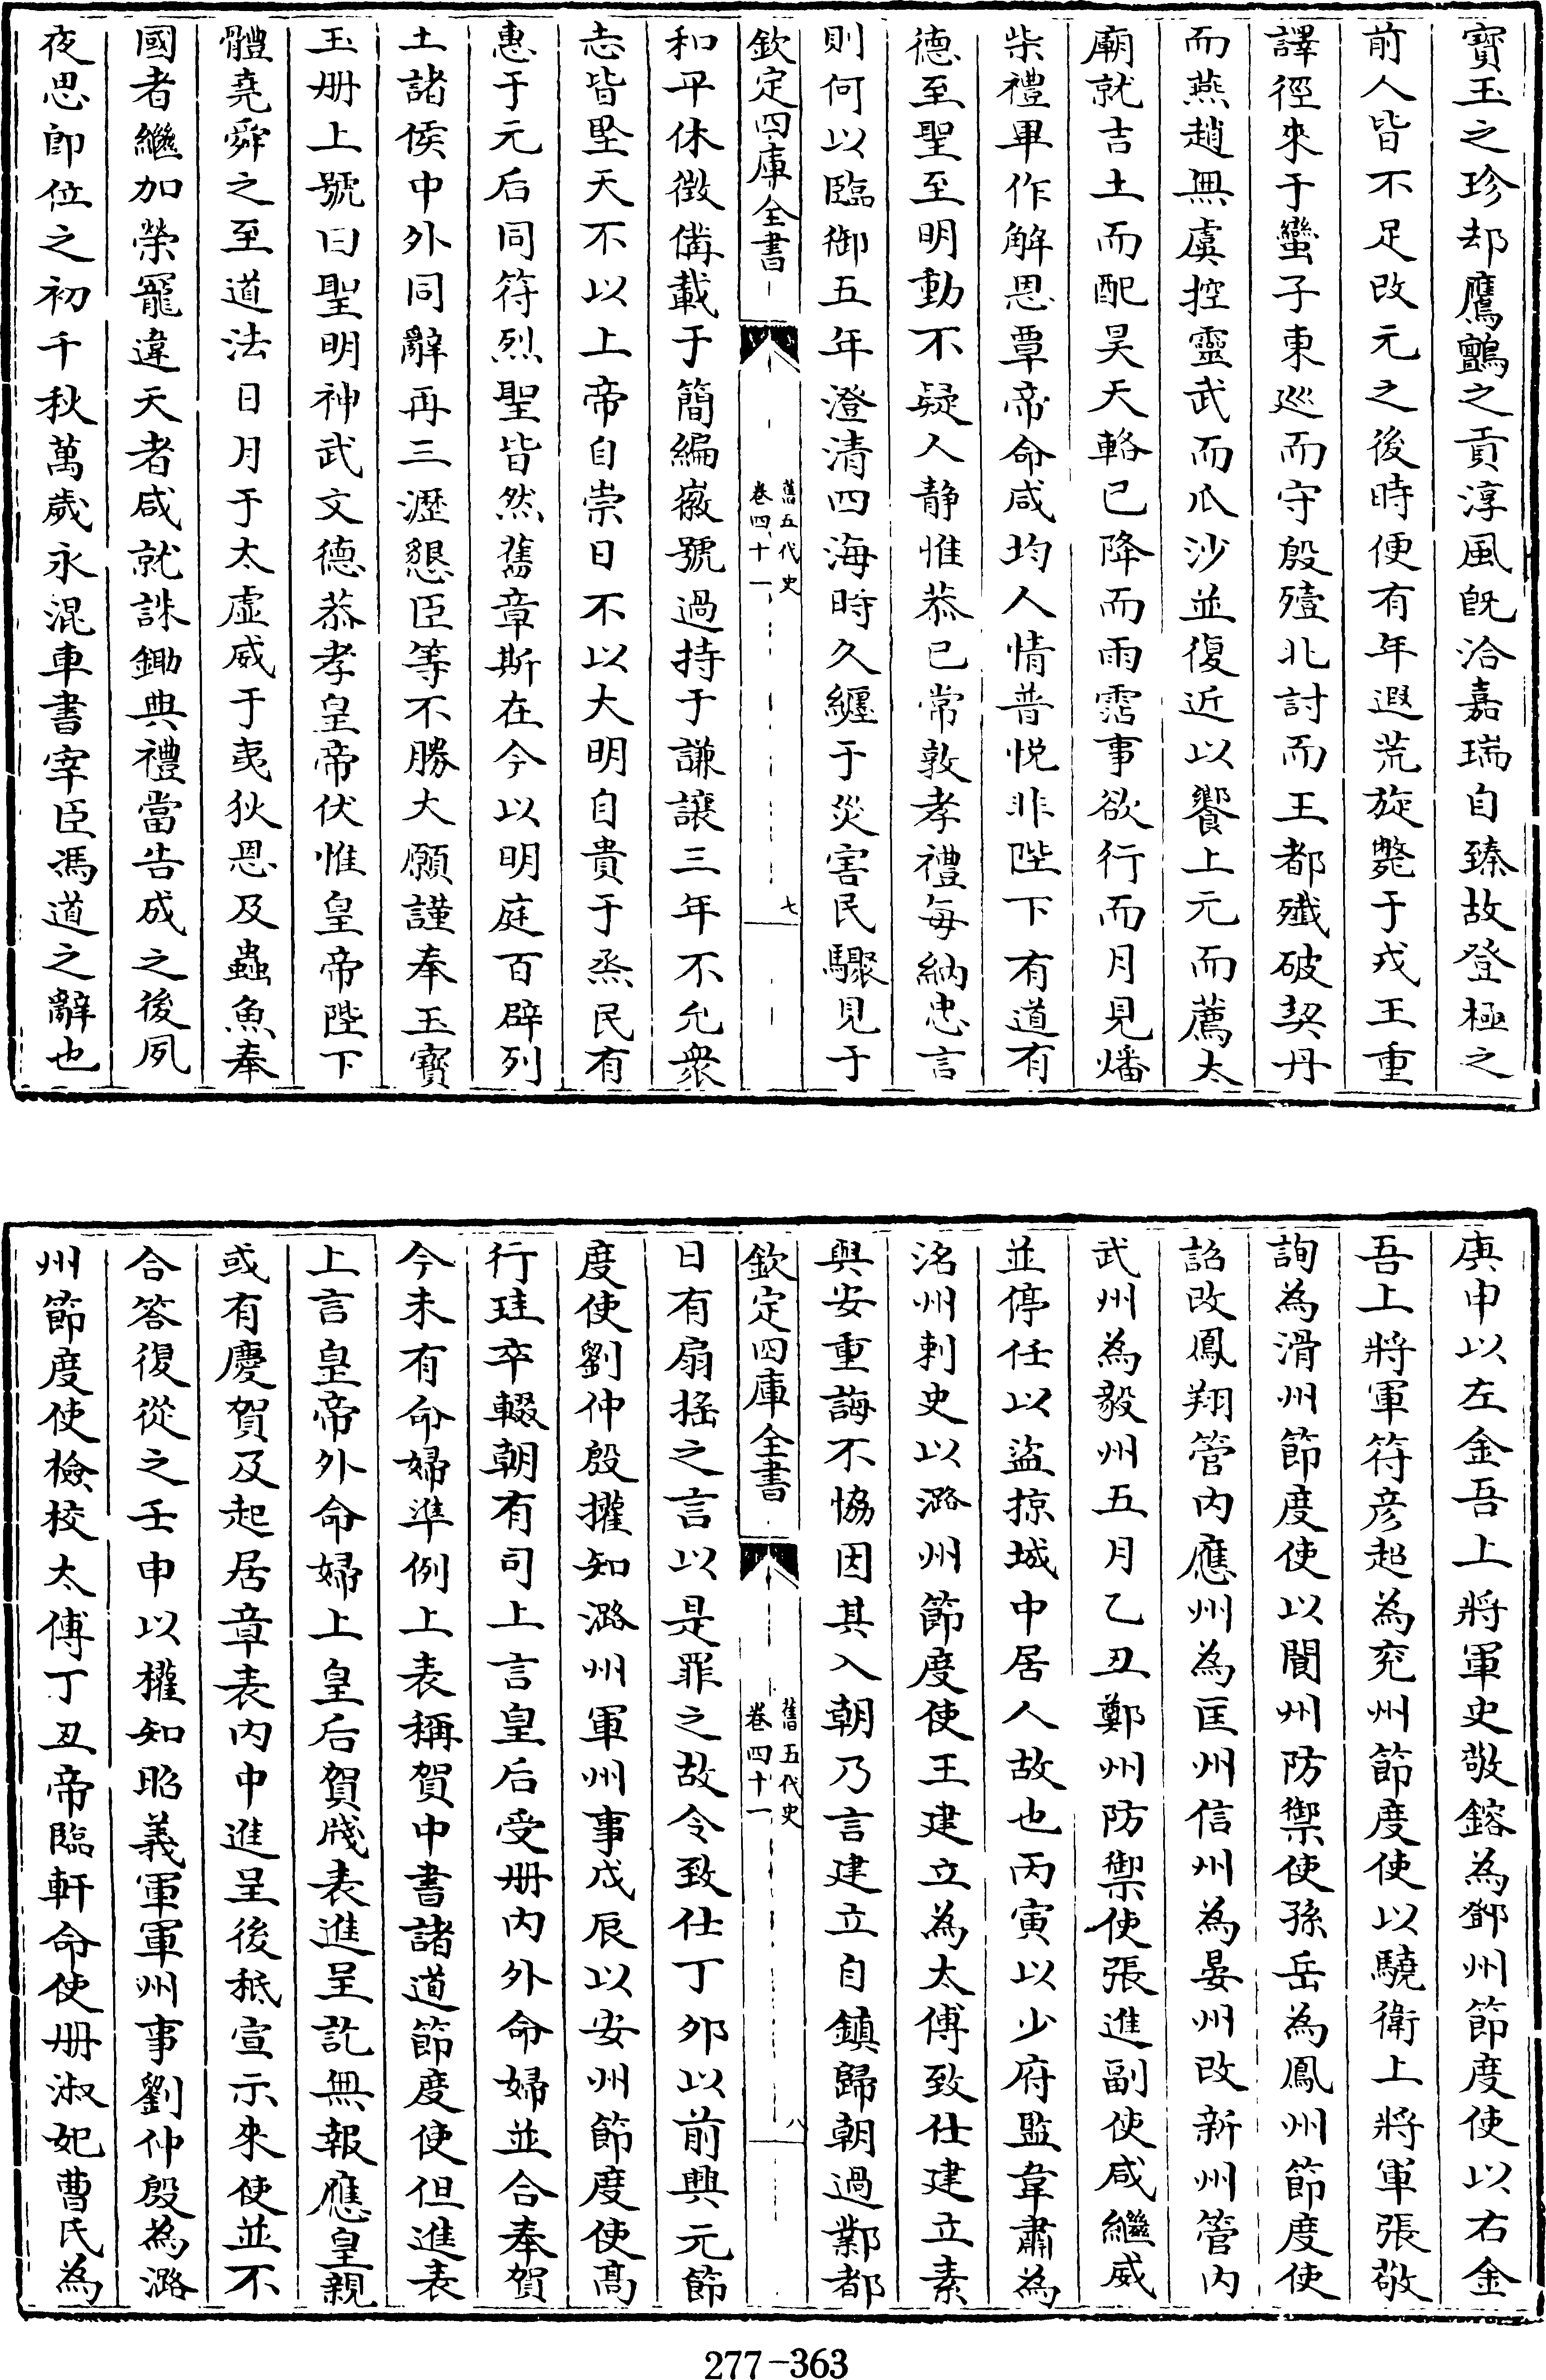 寳玉之珍却鷹鸇之貢淳風旣洽嘉瑞自臻故登極之
前人皆不足改元之後時便有年遐荒旋斃于戎王重
譯徑來于蠻子東巡而守殷殪北討而王都殱破契丹
而燕趙無虞控靈武而瓜沙並復近以饗上元而薦太
廟就吉土而配昊天輅已降而雨霑事欲行而月見燔
柴禮畢作解恩覃帝命咸均人情普悦非陛下有道有
德至聖至明動不疑人静惟恭已常敦孝禮每納忠言
則何以臨御五年澄清四海時久纒于災害民驟見于
欽定四庫全書
舊五代史
卷四十一
七
和平休徴備載于簡編徽號過持于謙讓三年不允衆
志皆墾天不以上帝自崇日不以大明自貴于烝民有
惠于元后同符烈聖皆然舊章斯在今以明庭百辟列
土諸侯中外同辭再三瀝懇臣等不勝大願謹奉玉寳
玉册上號曰聖明神武文德恭孝皇帝伏惟皇帝陛下
體堯舜之至道法日月于太虚威于夷狄恩及蟲魚奉
國者繼加榮寵違天者咸就誅鋤典禮當告成之後夙
夜思卽位之初千秋萬歲永混車書宰臣馮道之辭也
庚申以左金吾上將軍史敬鎔為鄧州節度使以右金
吾上將軍符彦超為兖州節度使以驍衛上將軍張敬
詢為滑州節度使以閬州防禦使孫岳為鳳州節度使
詔改鳳翔管内應州為匡州信州為晏州改新州管内
武州為毅州五月乙丑鄭州防禦使張進副使咸繼威
並停任以盜掠城中居人故也丙寅以少府監韋肅為
洺州刺史以潞州節度使王建立為太傅致仕建立素
與安重誨不協因其入朝乃言建立自鎮歸朝過鄴都
欽定四庫全書
舊五代史
卷四十一
八
日有扇揺之言以是罪之故令致仕丁夘以前興元節
度使劉仲殷權知潞州軍州事戊辰以安州節度使髙
行珪卒輟朝有司上言皇后受册内外命婦並合奉賀
今未有命婦準例上表稱賀中書諸道節度使但進表
上言皇帝外命婦上皇后賀牋表進呈訖無報應皇親
或有慶賀及起居章表内中進呈後秪宣示來使並不
合答復從之壬申以權知昭義軍軍州事劉仲殷為潞
州節度使檢校太傅丁丑帝臨軒命使册淑妃曹氏為
277-363